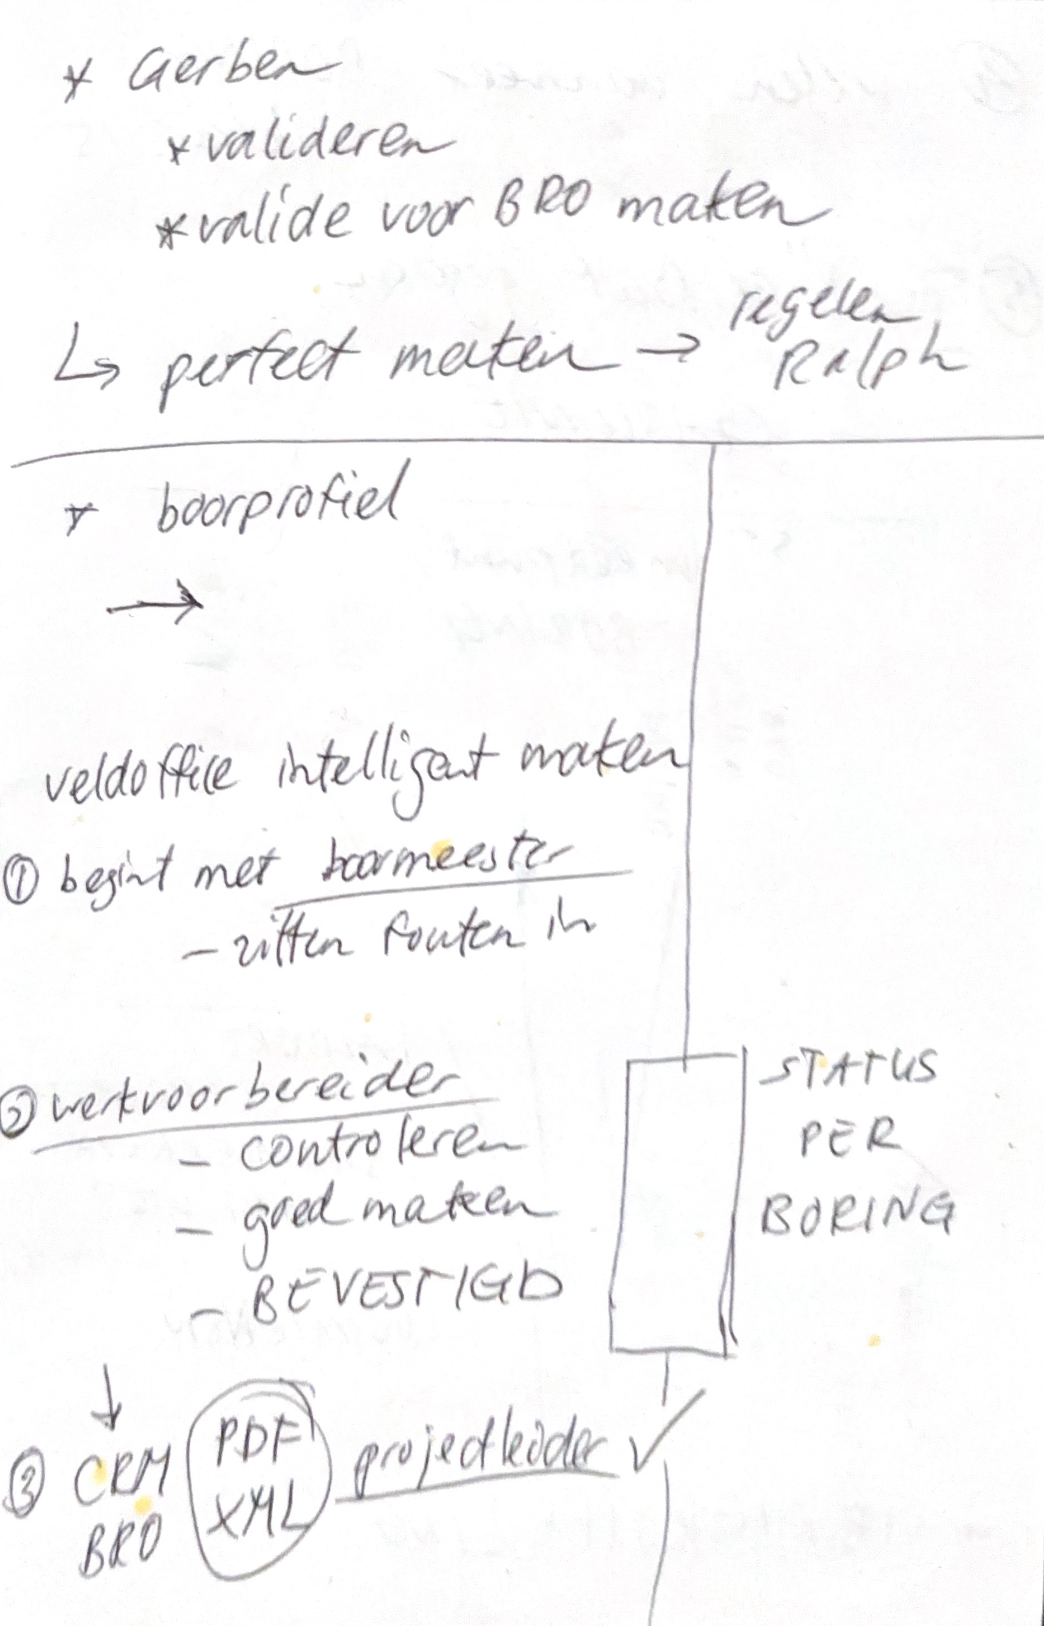 * Gerben
* valideren
* valide voor BRO maken
↳ perfect maken → regelen
Ralph
* boorprofiel
→
veldoffice intelligent maken
① begint met boormeester
- zitten fouten in
② werkvoorbereider
- controleren
- goed maken
- BEVESTIGD
STATUS
PER
BORING
↓
③ CRM PDF projectleider ✓
BRO XML